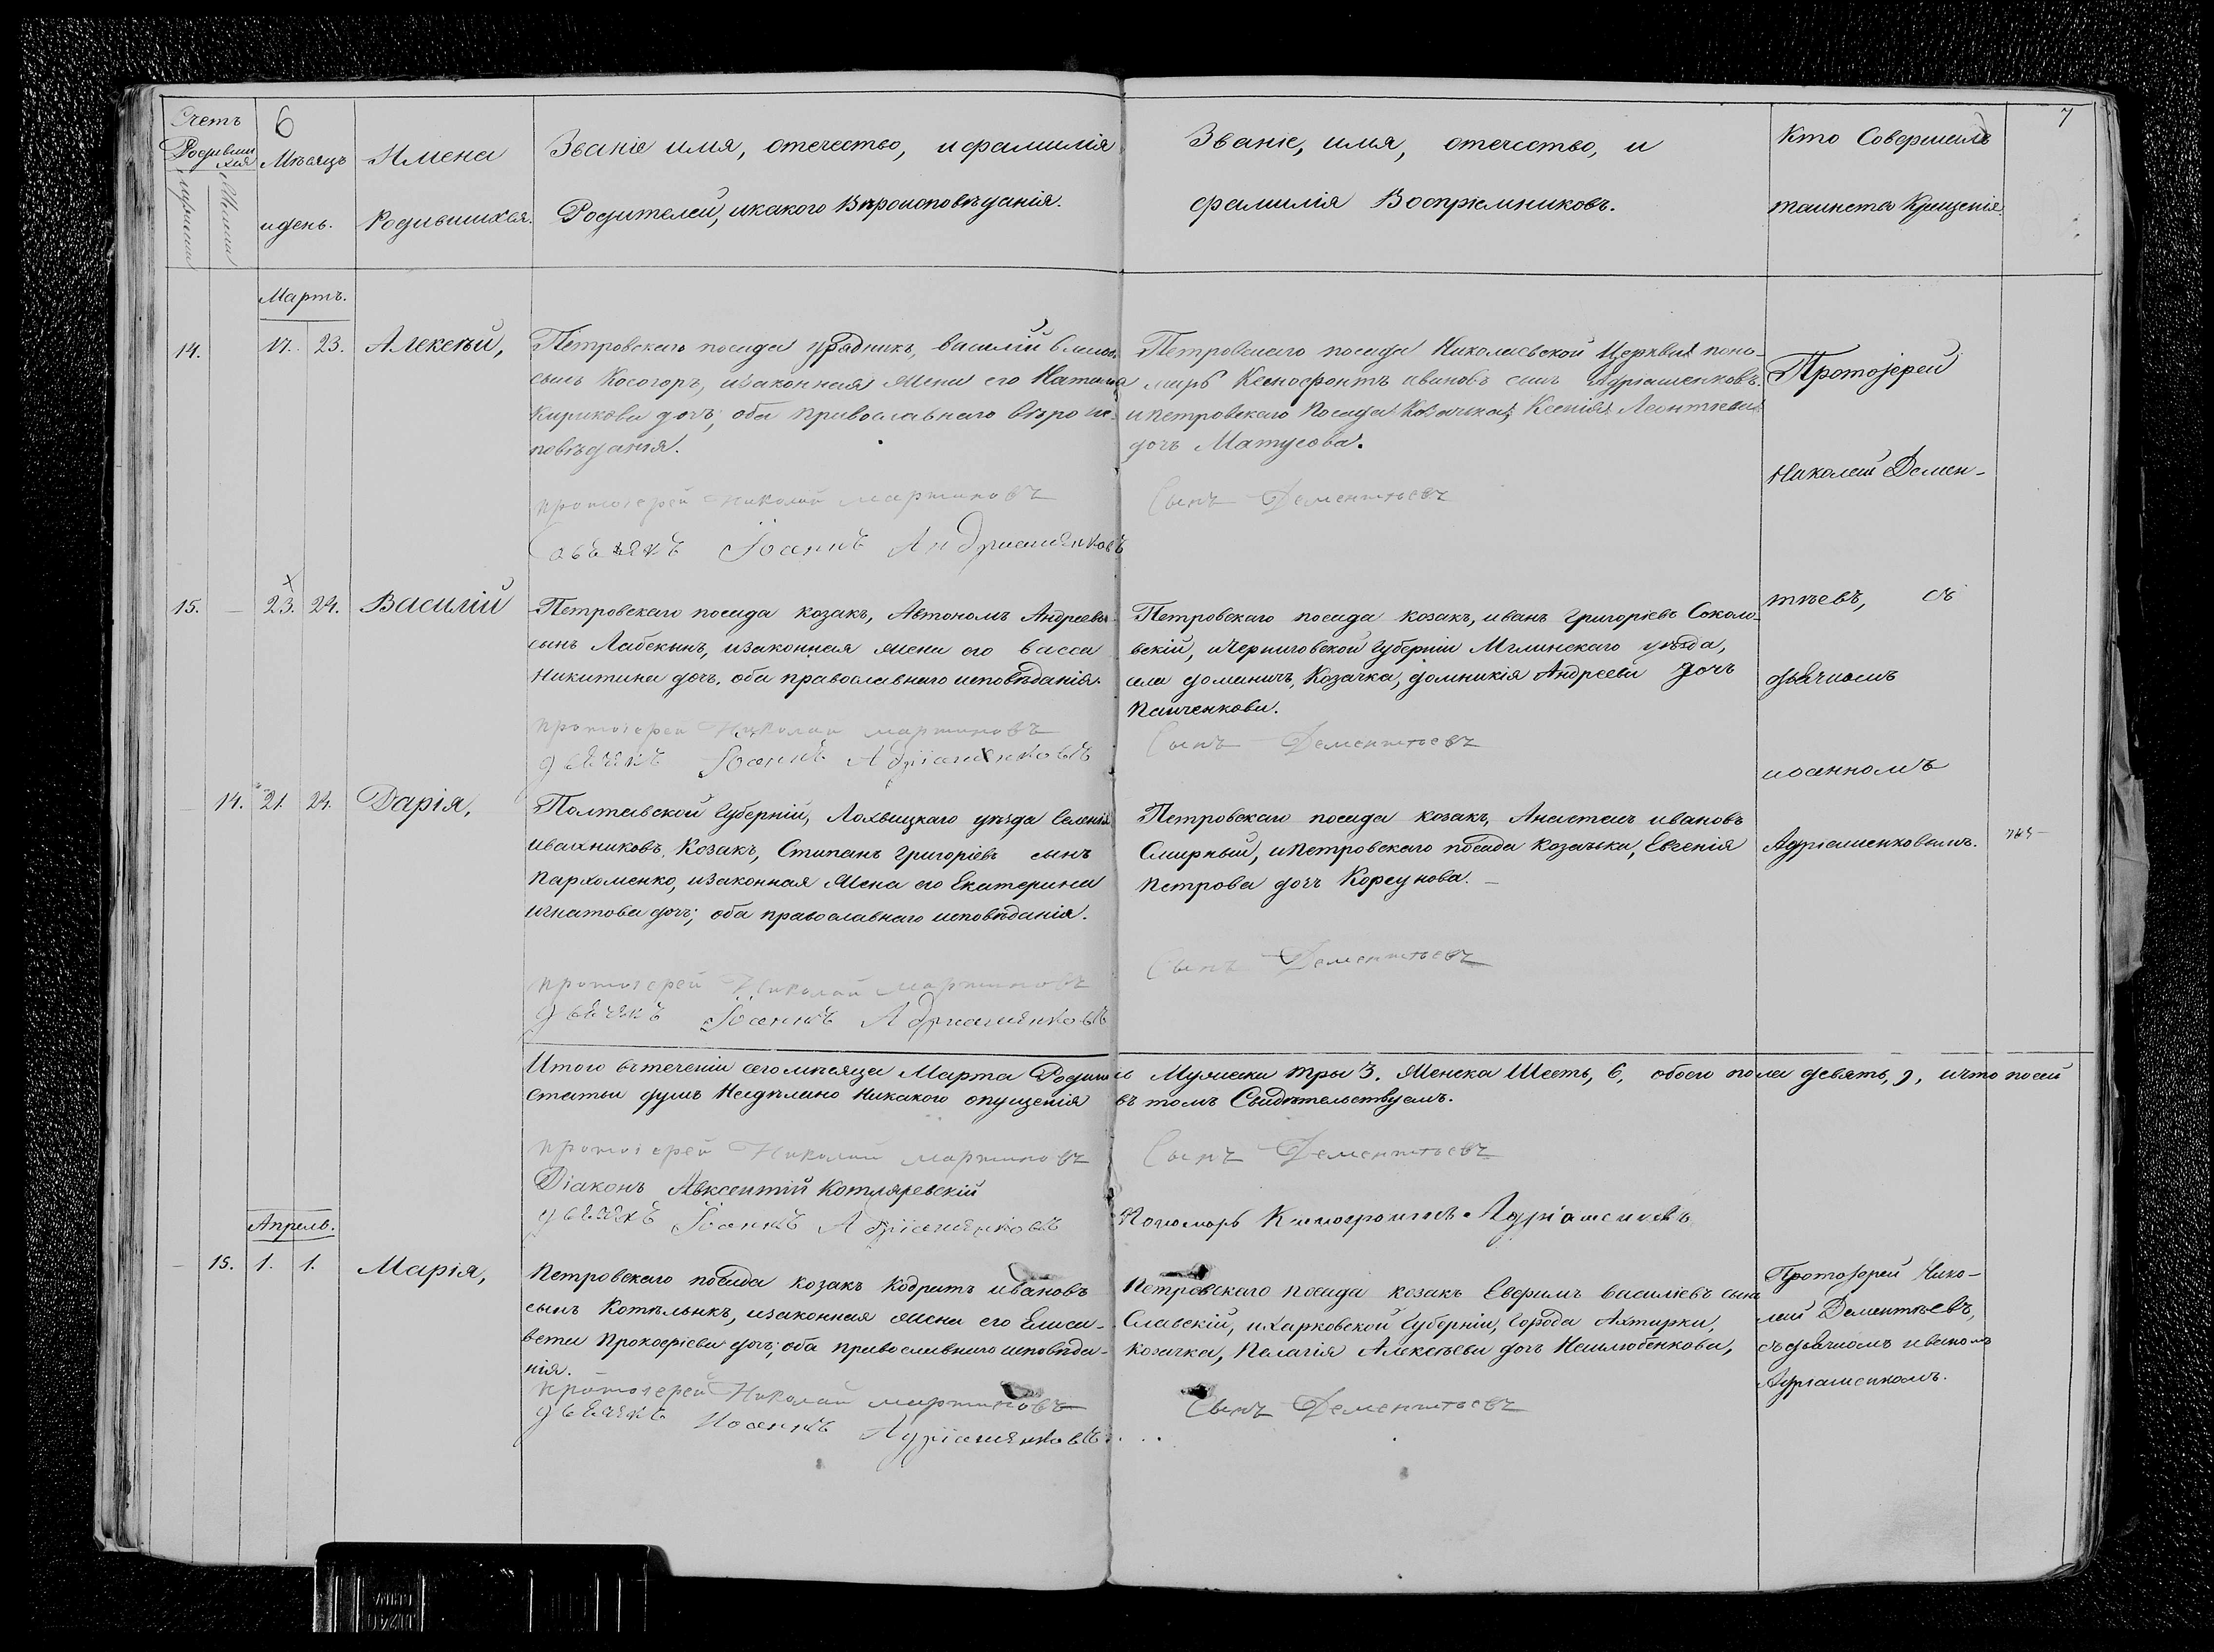 Счетъ
Родивши
хся
мужескъ
Женскъ
6
Мѣсяцъ
и день.
Имена
Родившихся.
Званіе имя, отечество, и фамилія
Родителей, и какого Вѣроисповѣданія.
Званіе, имя, отечество, и
фамилія Воспріемниковъ.
Кто Совершилъ
таинство Крещенія
7
Мартъ.
14.
17. 23.
Алексѣй,
Петровскаго посада урядникъ, Василій Власовъ
сынъ Косогоръ, и законная Жена его Наталія
Кирикова дочь; оба православнаго вѣро ис-
повѣданія.
протоіерей Николай мартиновъ
Іоаннъ Андриашенковъ
Петровскаго посада Николаевской Церкви поно-
марь Ксенофонтъ ивановъ сынъ Адріашенковъ.
и петровскаго Посада Козачка, Ксенія Леонтіева
дочь Матусова.
Сынъ Дементьевъ
Протоіерей
Николай Демен-
тьевъ, съ
дьячкомъ
иоанномъ
Адріашенковымъ.
745
15. — 23. 24.
Василій
Петровскаго посада козакъ, Автономъ Андреевъ
сынъ Лабекинъ, и законная жена его Васса
Никитина дочь, оба православнаго исповѣданія.
протоіерей Николай мартиновъ
дьячекъ Іоаннъ Адріашенковъ
Петровскаго посада козакъ, иванъ Григоріевъ Соколо-
вскій, и Черниговской Губерніи Мглинскаго уѣзда,
села доманичъ, Козачка, домникія Андреева дочь
Панченкова.
Сынъ Дементьевъ
— 14. 21. 24.
Дарія,
Полтавской Губерніи, Лохвицкаго уѣзда Селенія
Ивахниковъ, Козакъ, Стипанъ Григоріевъ сынъ
Пархоменко, и законная Жена его Екатерина
Игнатова дочь; оба православнаго исповѣданія.
протоіерей Николай Мартиновъ
дьячекъ Іоаннъ Адриашенковъ
Петровскаго посада козакъ, Анастасъ ивановъ
Смирный, и Петровскаго посада козачька, Евгенія
Петрова дочь Корсунова.
Сынъ Дементьевъ
Итого въ теченіи сего мѣсяца Марта Родилось Мужеска три 3. Женска Шесть, 6, обоего пола девять, 9, и что по сей
статьи душъ Несдѣлино Никакого опущенія въ томъ Свидѣтельствуемъ.
протоіерей Николай мартиновъ
Сынъ Дементьевъ
Діаконъ Авксентій Котляревскій
дьячекъ Іоаннъ Адріашенковъ
Пономарь Ксенофонтъ Адріашенковъ
Апрель.
— 15. 1. 1.
Марія,
Петровскаго посада козакъ Кодратъ ивановъ
сынъ Котѣльникъ, и законная жена его Елиса-
вета Прокофіева дочь; оба православнаго исповѣда-
нія.
протоіерей Николай мартиновъ
дьячекъ Иоаннъ Адріашенковъ
Петровскаго посада козакъ Евфимъ Василіевъ сынъ
Славскій, и Харковской Губерніи, Города Ахтирки,
козачка, Пелагія Алексѣева дочь Нешлюбенкова,
Сынъ Дементьевъ
Протоіерей Нико-
лай Дементьевъ,
съ дьячкомъ иваномъ
Адріашенкомъ.